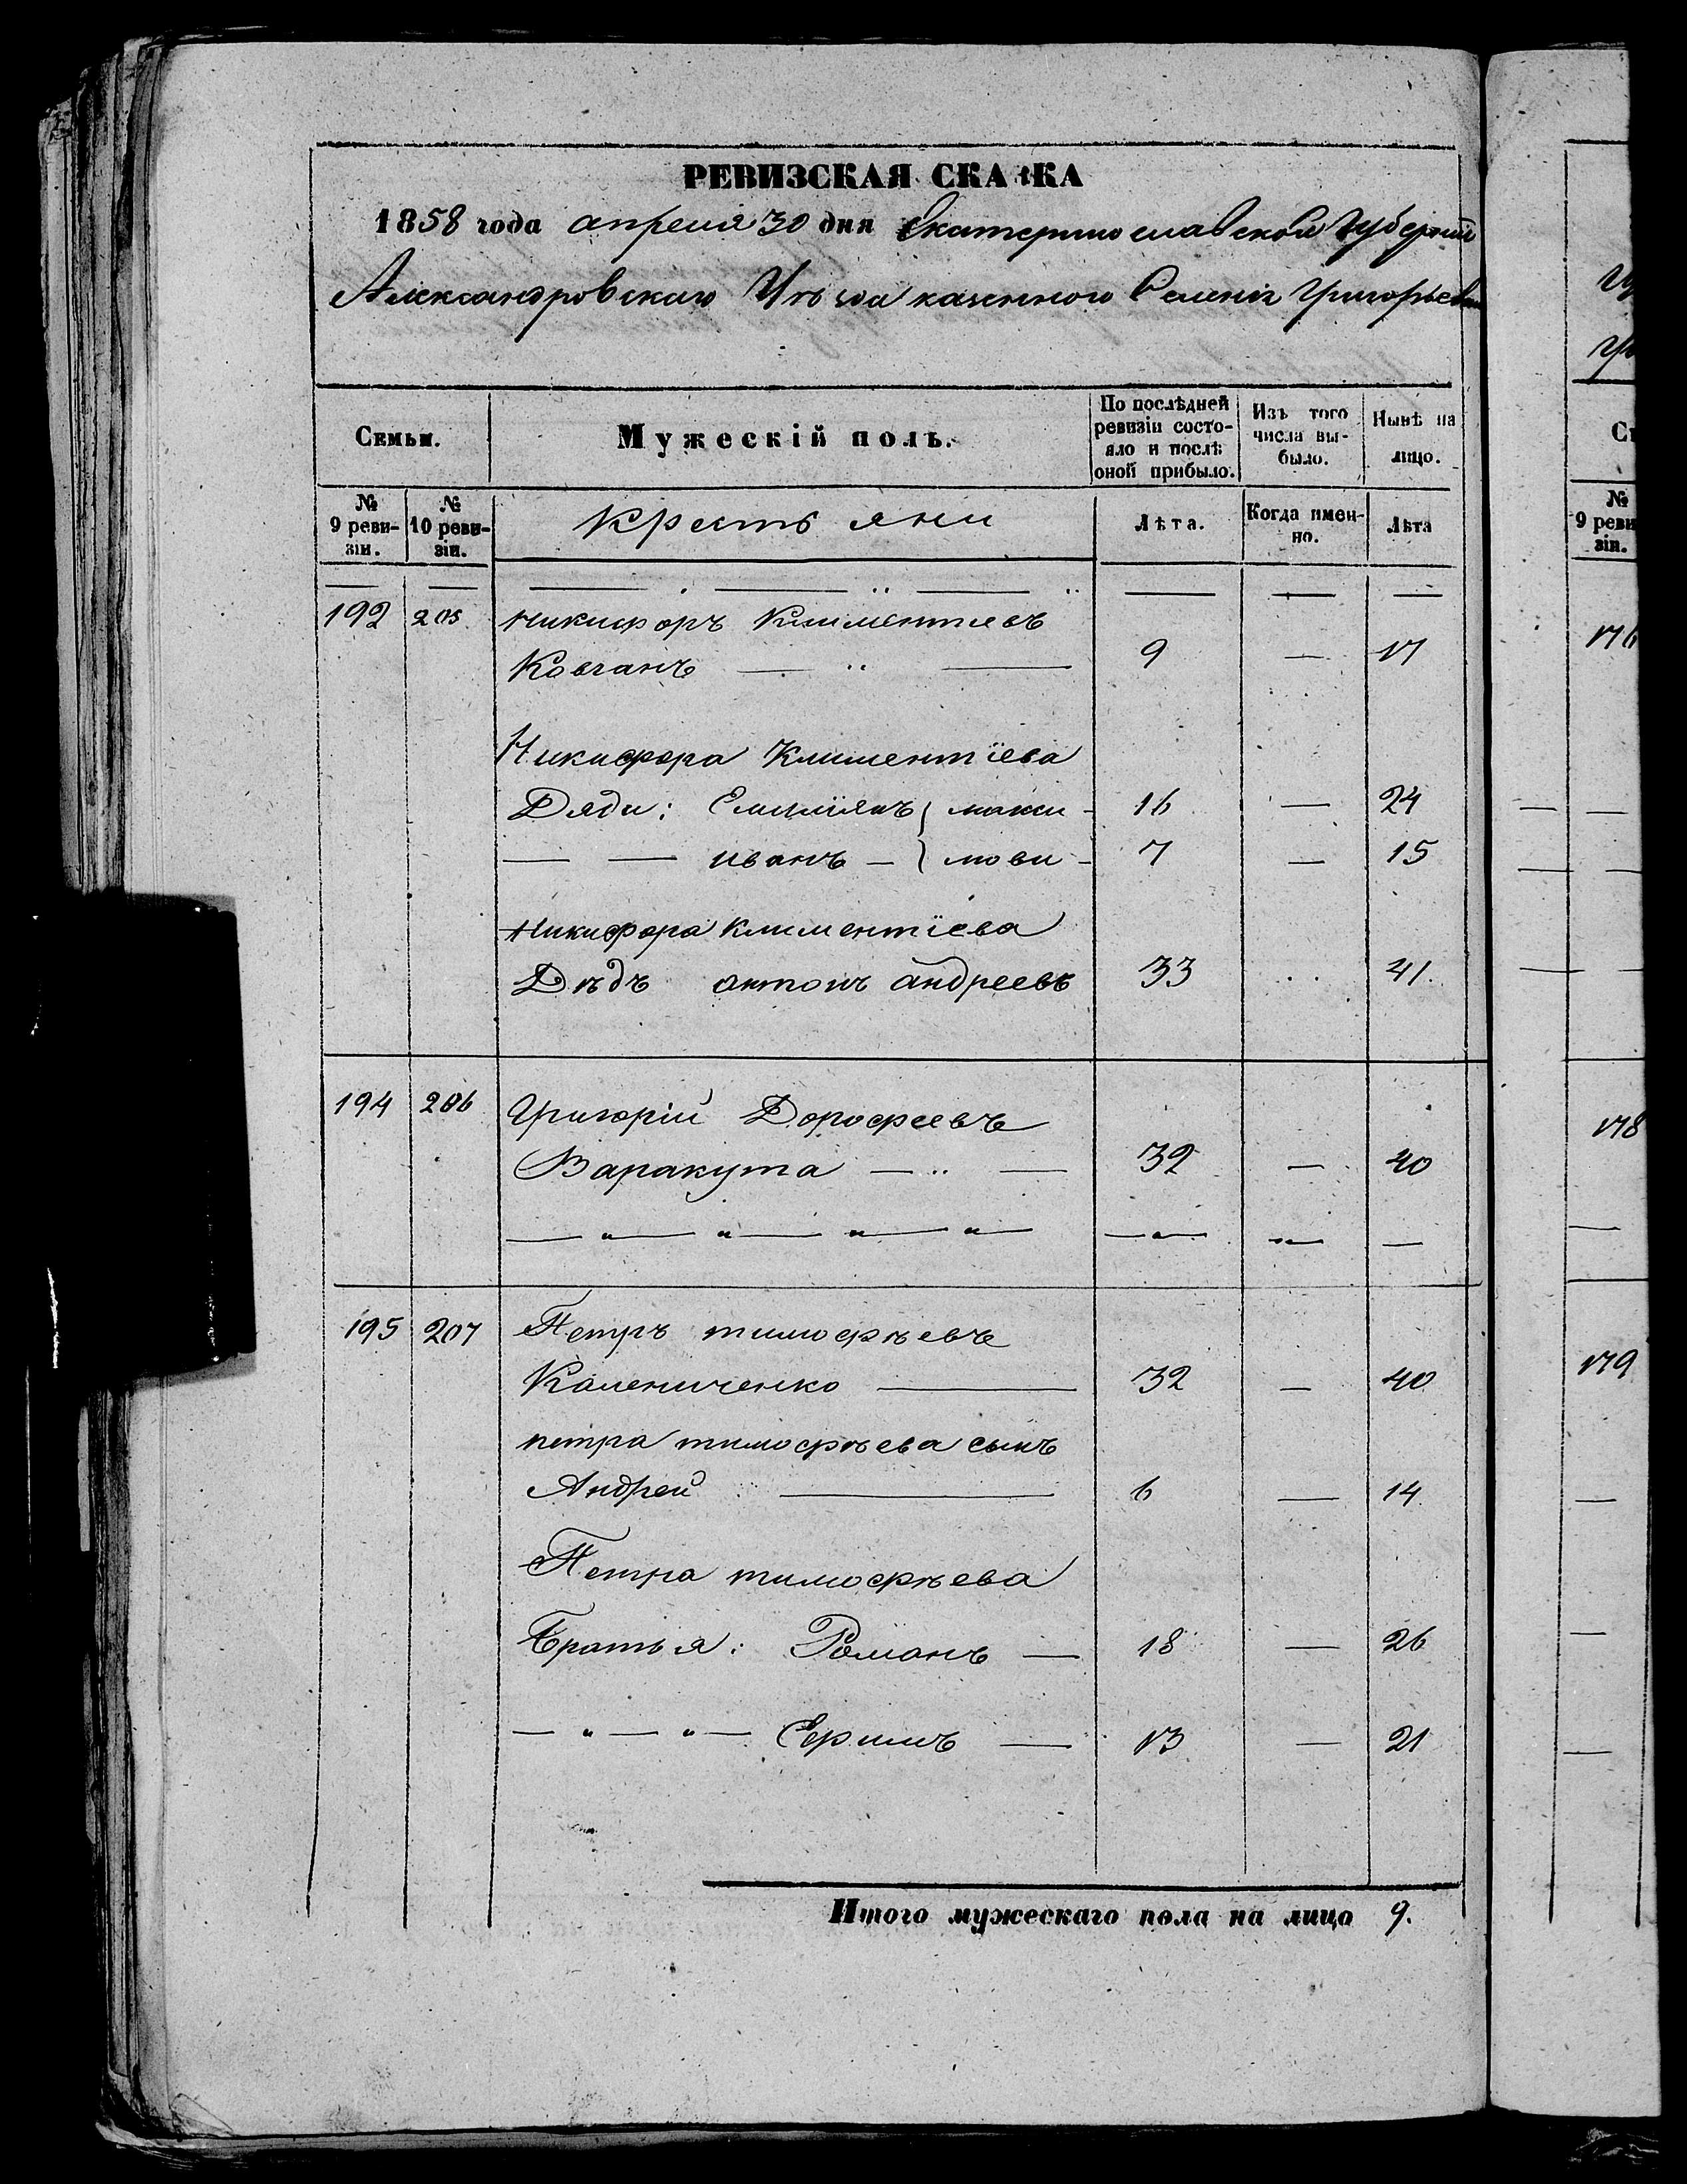 РЕВИЗСКАЯ СКАЗКА
1858 года апреля 30 дня Екатеринославской Губернии
Александровскаго Уѣзда казенного Селенія Григорьевки
Семьи.
Мужескій полъ.
По послѣдней ревизіи состояло и послѣ оной прибыло.
Изъ того числа выбыло.
Нынѣ на лицо.
№ 9 ревизіи.
№ 10 ревизіи.
Крестьяни
Лѣта.
Когда именно.
Лѣта
192 205 Никифоръ Климентиевъ
Ковганъ — " — 9 — 17
Никифора Климентіева
Дяди: Емилиянъ } макси- 16 — 24
— — иванъ — } мови - 7 — 15
Никифора Климентіева
Дѣдъ антонъ андреевъ 33 .. 41.
194 206 Григорій Дорофеевъ
Варакута — " — 32 — 40
195 207 Петръ тимофѣевъ
Калениченко — 32 — 40
петра тимофѣева сынъ
Андрей — 6 — 14.
Петра тимофѣева
Братья: Романъ — 18 — 26
— " — " — Ефимъ — 13 — 21
Итого мужескаго пола на лицо 9.
№ 9 реви
зіи.
176
178
179